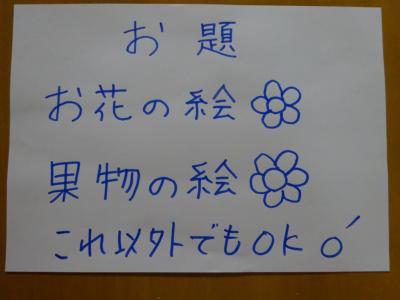 お題
お花の絵
果物の絵
これ以外でもOK